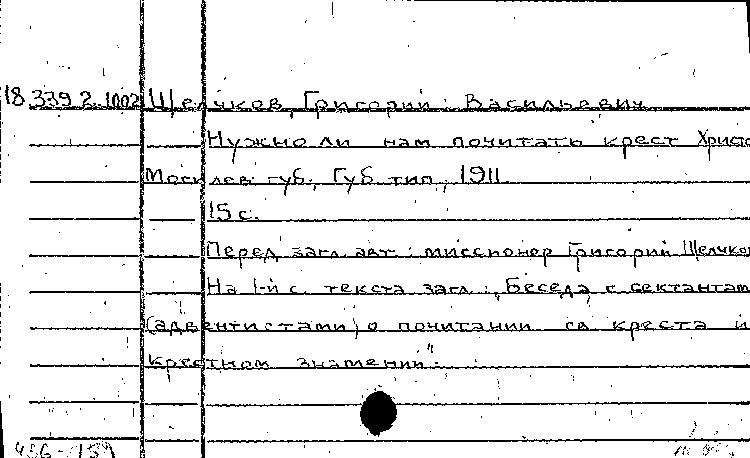 18.339.2.1002 Щелчков, Григорий Васильевич
Нужно ли нам почитать крест Христо
Могилев. губ., Губ. тип., 1911
15 с.
Перед загл. авт.: миссионер Григорий Щелчков
На 1-й с. текста загл.: „Беседа с сектантам
(адвентистами) о почитании св. креста и
крестном знамении".
456-159